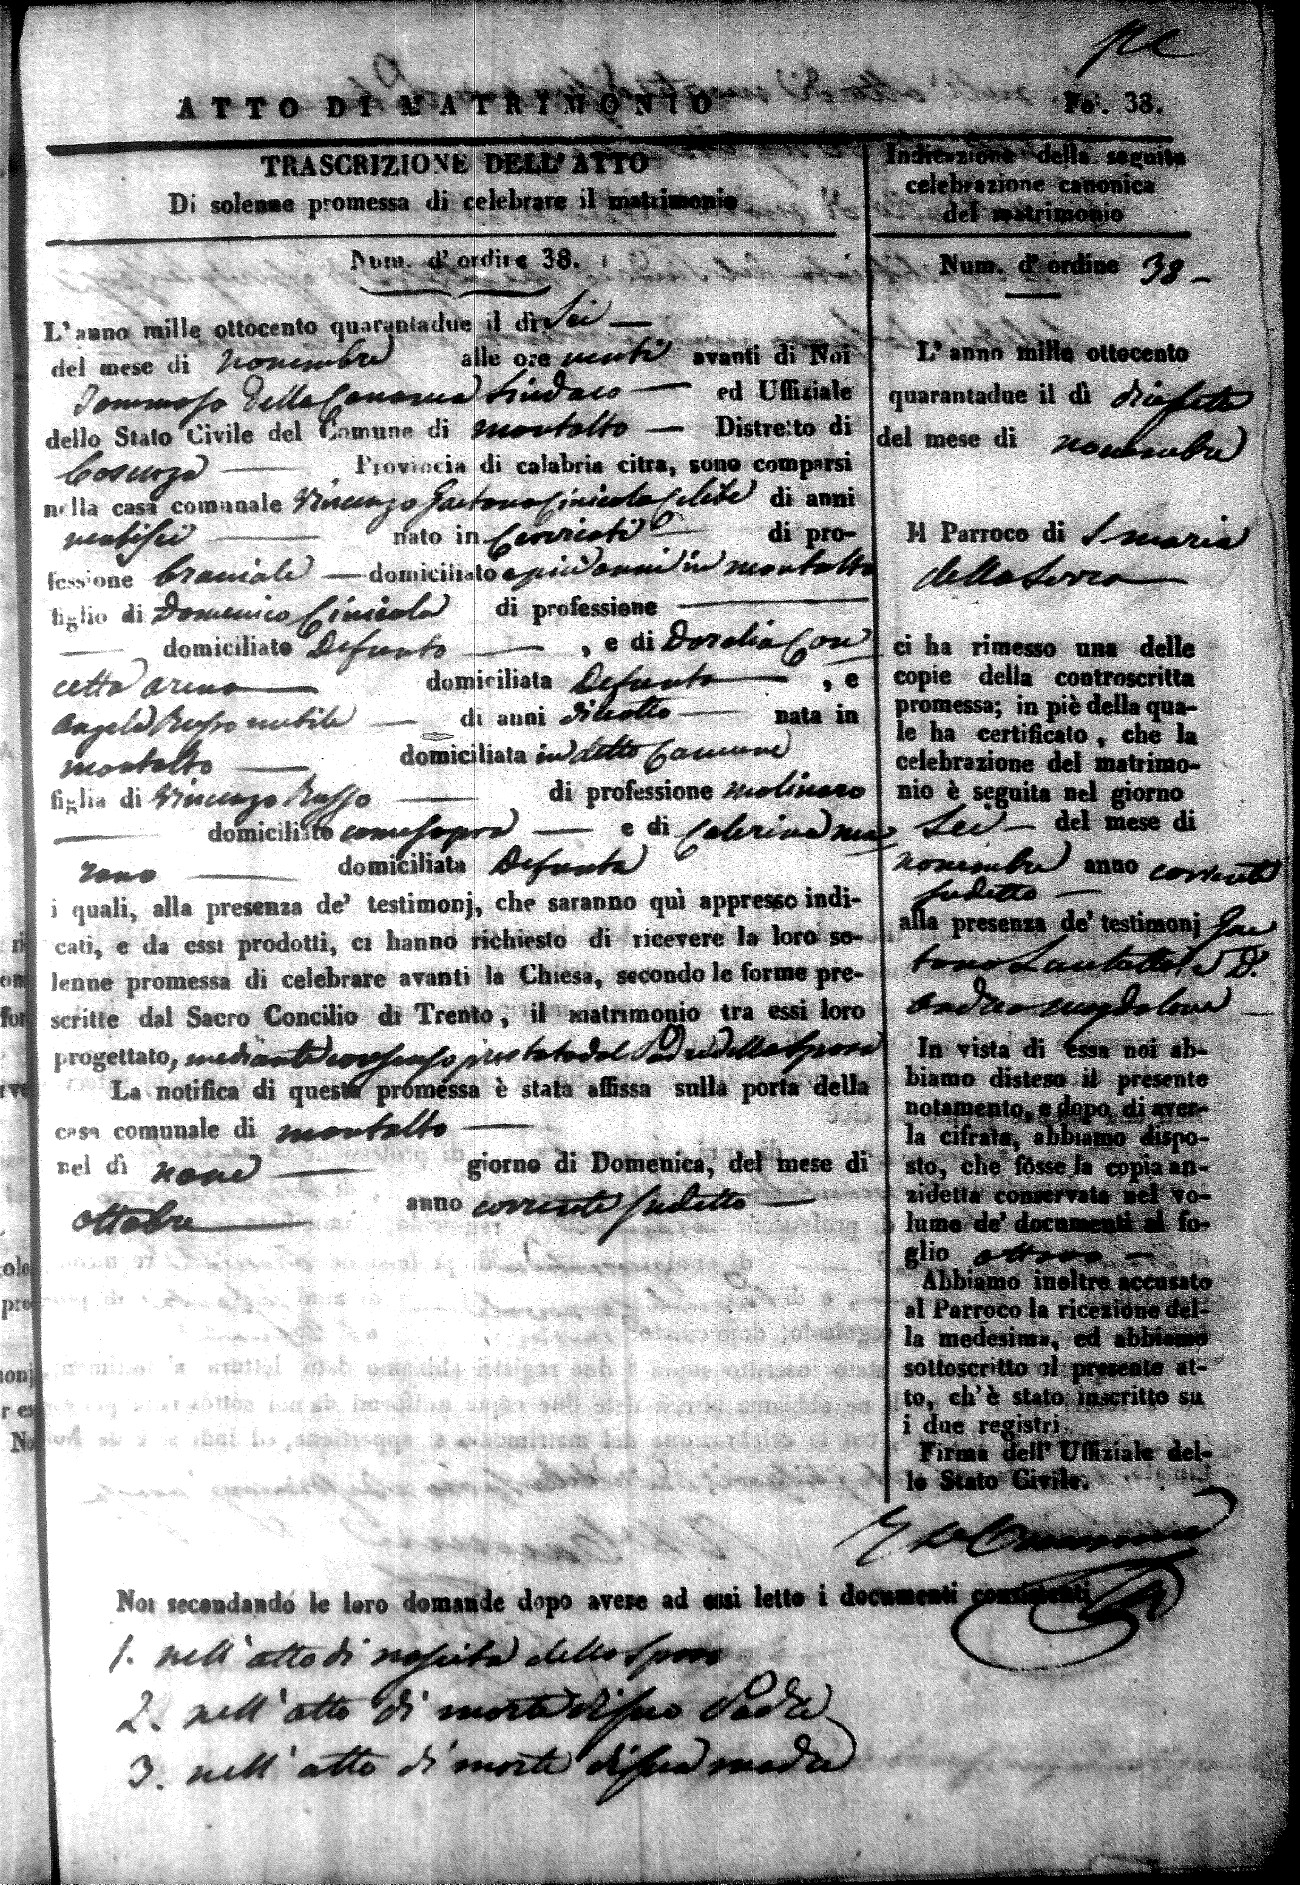 ATTO DI MATRIMONIO
Fo. 38.
TRASCRIZIONE DELL'ATTO
Di solenne promessa di celebrare il matrimonio
Num. d'ordine 38.
L'anno mille ottocento quarantadue il dì Sei
del mese di novembre alle ore venti avanti di Noi
Tommaso Della Canania Sindaco ed Uffiziale
dello Stato Civile del Comune di montalto Distretto di
Cosenza Provincia di calabria citra, sono comparsi
nella casa comunale Vincenzo Gaetano Cinicola Celibe di anni
ventisei nato in di pro-
fessione braciale domiciliato a più anni in montalto
figlio di Domenico Cinicola di professione
domiciliato Defunto , e di Dorelia Con
cetta arena domiciliata Defunta , e
Angela Russo nubile di anni diciotto nata in
montalto domiciliata in detto Comune
figlia di Vincenzo Russo di professione molinaro
domiciliato come sopra e di Caterina
domiciliata Defunta
i quali, alla presenza de' testimonj, che saranno quì appresso indi-
cati, e da essi prodotti, ci hanno richiesto di ricevere la loro so-
lenne promessa di celebrare avanti la Chiesa, secondo le forme pre-
scritte dal Sacro Concilio di Trento, il matrimonio tra essi loro
progettato, mediante consenso prestato dal Padre della Sposa
La notifica di questa promessa è stata affissa sulla porta della
casa comunale di montalto
nel dì nove giorno di Domenica, del mese di
ottobre anno corrente sudetto
Indicazione della seguita
celebrazione canonica
del matrimonio
Num. d'ordine 38
L'anno mille ottocento
quarantadue il dì diciasette
del mese di novembre
Il Parroco di S maria
della Serra
ci ha rimesso una delle
copie della controscritta
promessa; in piè della qua-
le ha certificato, che la
celebrazione del matrimo-
nio è seguita nel giorno
Sei del mese di
novembre anno corrente
sudetto
alla presenza de' testimonj Gae
tano e D.
Andrea
In vista di essa noi ab-
biamo disteso il presente
notamento, e dopo di aver-
la cifrata, abbiamo dispo-
sto, che fosse la copia an-
zidetta conservata nel vo-
lume de' documenti al fo-
glio ottavo
Abbiamo inoltre accusato
al Parroco la ricezione del-
la medesima, ed abbiamo
sottoscritto al presente at-
to, ch'è stato inscritto su
i due registri.
Firma dell'Uffiziale del-
lo Stato Civile.
Noi secondando le loro domande dopo avere ad essi letto i documenti consistenti
1. nell'atto di nascita dello Sposo
2. nell'atto di morte di suo Padre
3. nell'atto di morte di sua madre